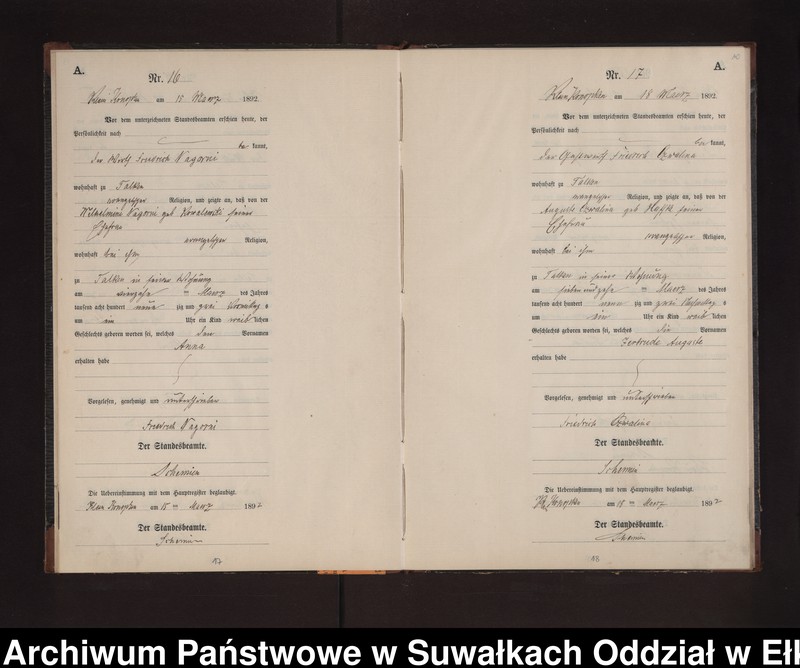 A.
Nr. 16
am 15 Maerz 1892
Vor dem unterzeichneten Standesbeamten erschien heute, der
Persönlichkeit nach
be kannt,
der Friedrich Nagorni
wohnhaft zu Talken
evangelischer Religion, und zeigte an, daß von der
Wilhelmine Nagorni geb Kowalewski seiner
Ehefrau
evangelischer Religion,
wohnhaft bei ihm
zu Talken in seiner Wohnung
am Maerz des Jahres
tausend acht hundert neun zig und zwei Vormittag s
um ein Uhr ein Kind weib lichen
Geschlechts geboren worden sei, welches den Vornamen
Anna
erhalten habe
Vorgelesen, genehmigt und unterschrieben
Friedrich Nagorni
Der Standesbeamte.
Die Uebereinstimmung mit dem Hauptregister beglaubigt.
am 15 ten Maerz 1892
Der Standesbeamte.
A.
Nr. 17
am 18 Maerz 1892
Vor dem unterzeichneten Standesbeamten erschien heute, der
Persönlichkeit nach
be kannt,
der Gastwirth Friedrich
wohnhaft zu Talken
evangelischer Religion, und zeigte an, daß von der
Auguste geb seiner
Ehefrau
evangelischer Religion,
wohnhaft bei ihm
zu Talken in seiner Wohnung
am siebenundzehn Maerz des Jahres
tausend acht hundert neun zig und zwei s
um ein Uhr ein Kind weib lichen
Geschlechts geboren worden sei, welches die Vornamen
Gertrude Auguste
erhalten habe
Vorgelesen, genehmigt und unterschrieben
Friedrich
Der Standesbeamte.
Die Uebereinstimmung mit dem Hauptregister beglaubigt.
am 18 ten Maerz 1892
Der Standesbeamte.
Archiwum Państwowe w Suwałkach Oddział w Eł